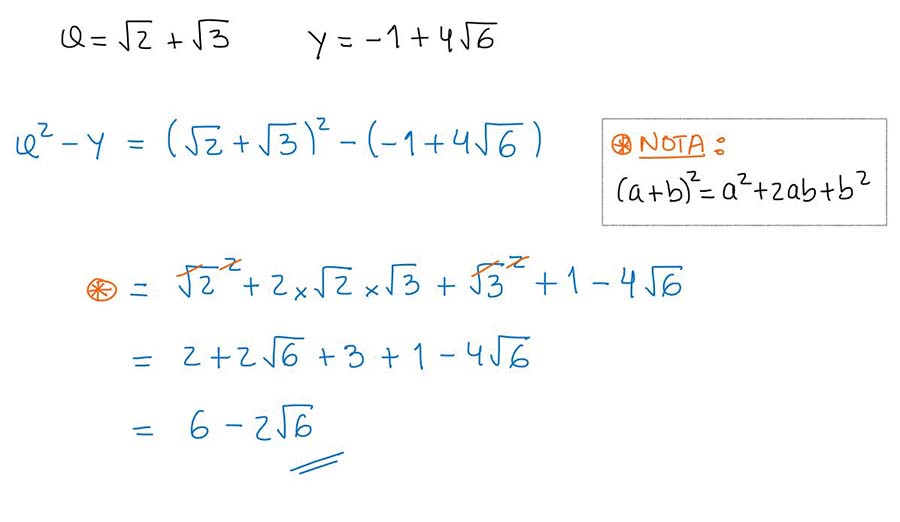 ϑ = √2 + √3 y = -1 + 4√6
ϑ² - y = (√2 + √3)² - (-1 + 4√6)
⊛ NOTA:
(a+b)² = a² + 2ab + b²
⊛ = √2² + 2×√2×√3 + √3² + 1 - 4√6
= 2 + 2√6 + 3 + 1 - 4√6
= 6 - 2√6